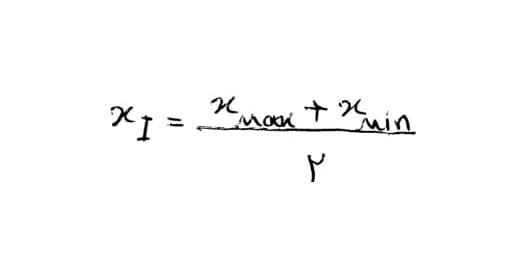 x_I = (x_max + x_min) / ۲